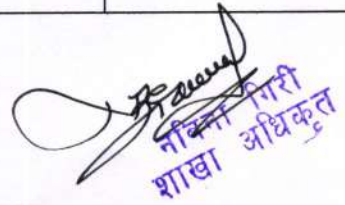 नविना गिरी
शाखा अधिकृत